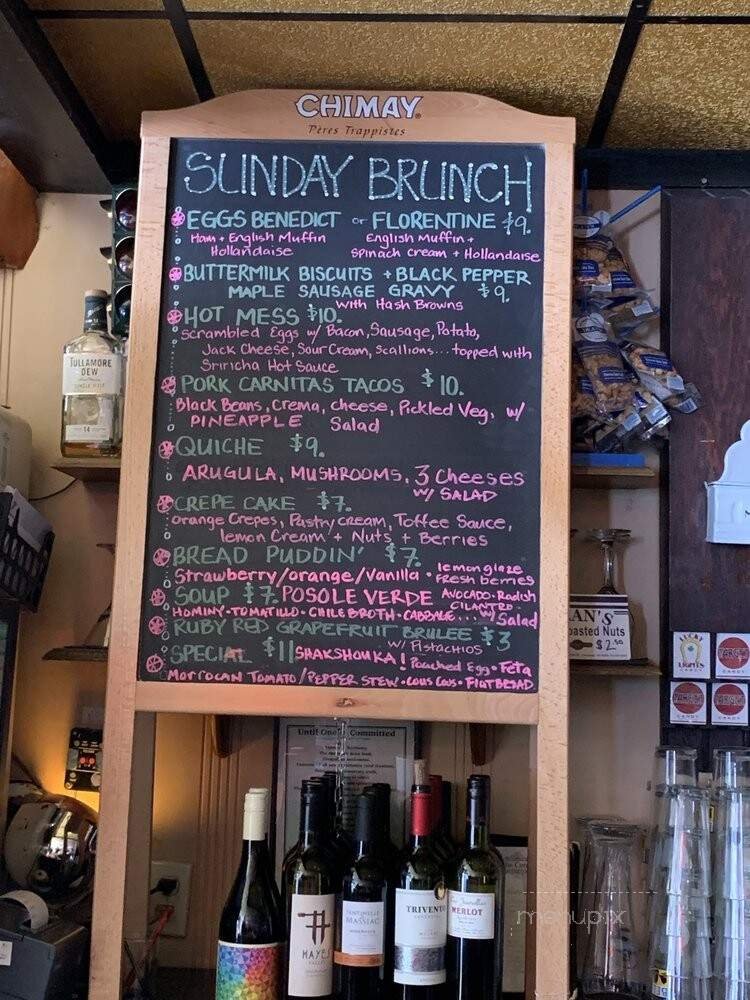 CHIMAY
Pères Trappistes
SUNDAY BRUNCH
EGGS BENEDICT or FLORENTINE $9.
Ham + English Muffin English Muffin +
Hollandaise Spinach Cream + Hollandaise
BUTTERMILK BISCUITS + BLACK PEPPER
MAPLE SAUSAGE GRAVY $9.
with Hash Browns
HOT MESS $10.
Scrambled Eggs w/ Bacon, Sausage, Potato,
Jack Cheese, Sour Cream, Scallions... topped with
Sriricha Hot Sauce
PORK CARNITAS TACOS $10.
Black Beans, Crema, cheese, Pickled Veg, w/
PINEAPPLE Salad
QUICHE $9.
ARUGULA, MUSHROOMS, 3 Cheeses
w/ SALAD
CREPE CAKE $7.
Orange Crepes, Pastry cream, Toffee Sauce,
lemon Cream + Nuts + Berries
BREAD PUDDIN' $7.
Strawberry/orange/Vanilla • lemon glaze
Fresh berries
SOUP $7. POSOLE VERDE AVOCADO • Radish
CILANTRO •
HOMINY • TOMATILLO • CHILE BROTH • CABBAGE... w/ Salad
RUBY RED GRAPEFRUIT BRULEE $3
w/ Pistachios
SPECIAL $11 SHAKSHOUKA! Poached Egg • Feta
MORROCAN TOMATO/PEPPER STEW • COUS COUS • FLATBREAD
TULLAMORE
DEW
14
Until One is Committed
AN'S
oasted Nuts
$2.50
LUCKY
LIGHTS
CANDY
TARGET
CANDY
HAYES
VALLEY
MASSIAC
TRIVENTO
MERLOT
menupix